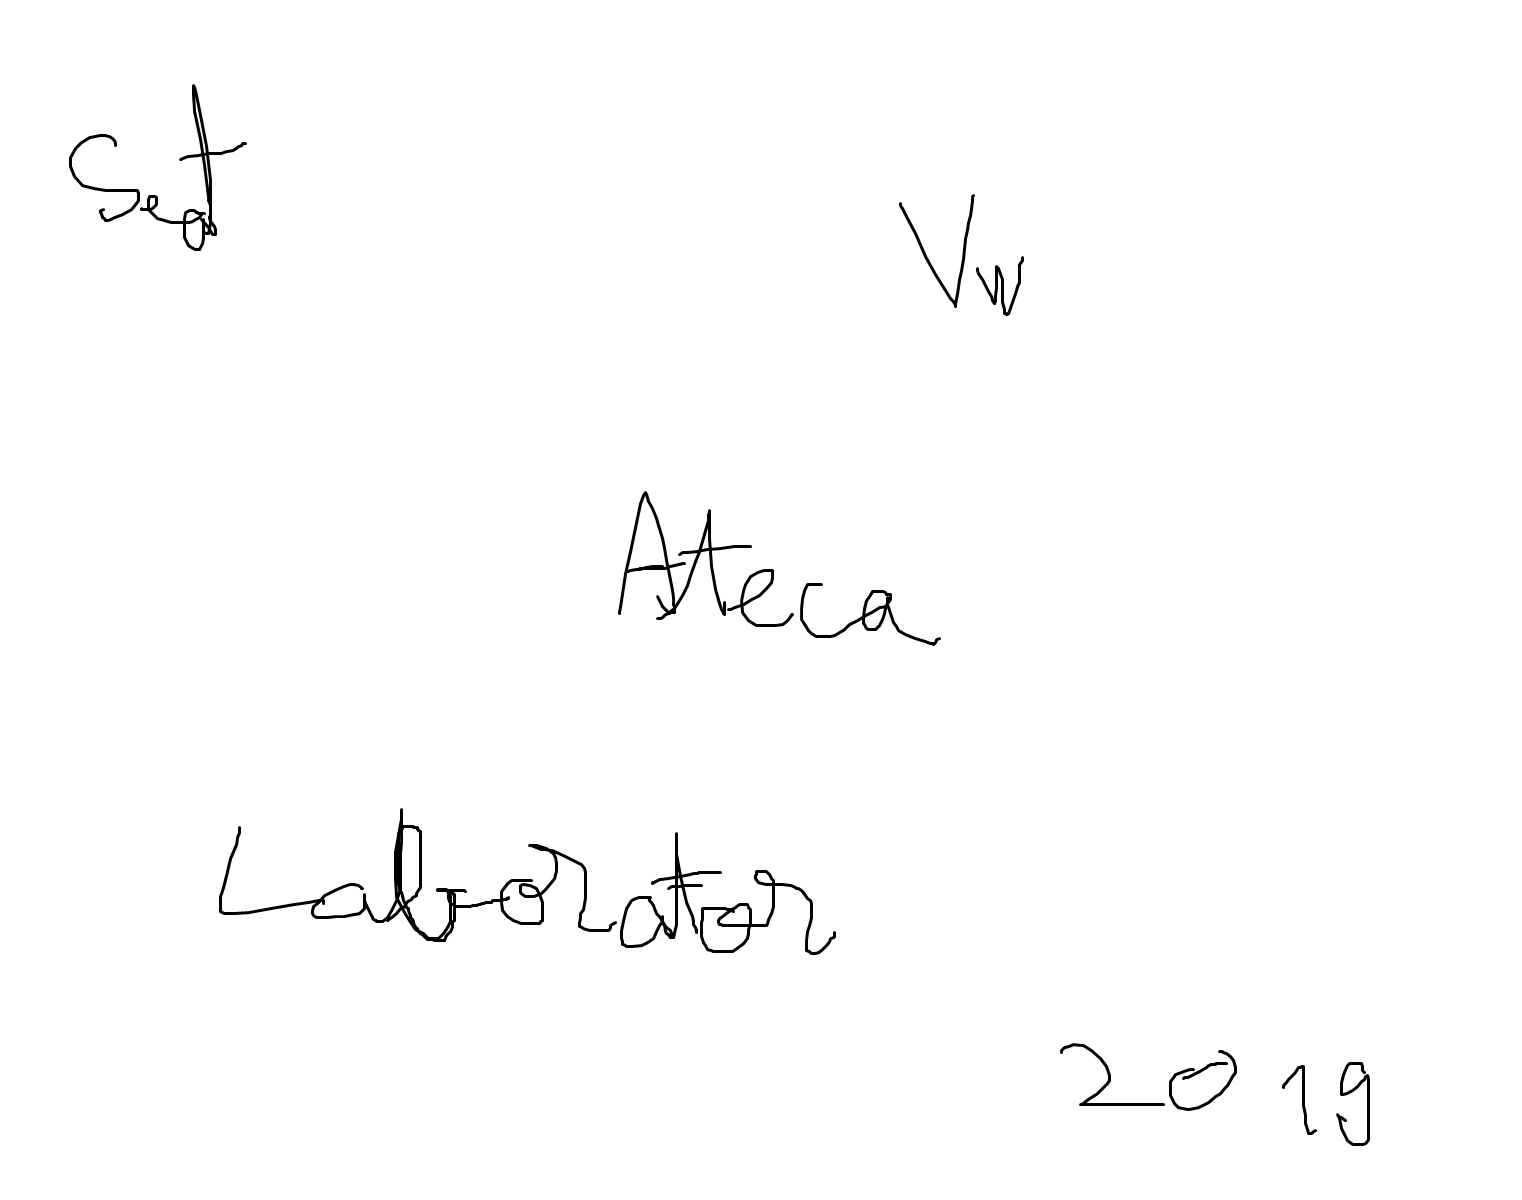 Seat
Vw
Ateca
Laborator
2019